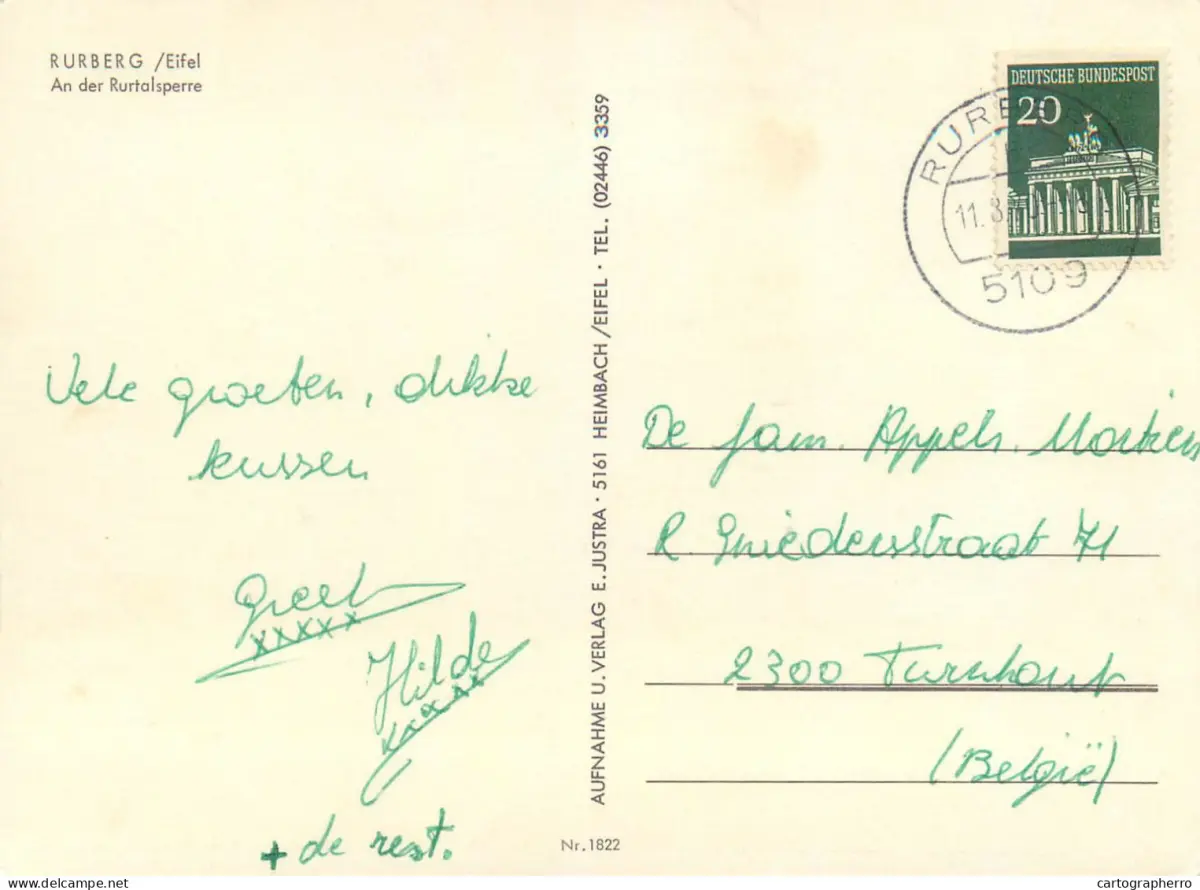 RURBERG /Eifel
An der Rurtalsperre
Vele groeten, dikke
kussen
Greet
xxxxx
Hilde
xxxxx
+ de rest.
AUFNAHME U. VERLAG E. JUSTRA · 5161 HEIMBACH/EIFEL · TEL. (02446) 3359
Nr. 1822
DEUTSCHE BUNDESPOST
20
11.8.
5109
De fam. Appels. Martiens
R. Sniedersstraat 71
2300 Turnhout
(België)
delcampe.net
cartographerro